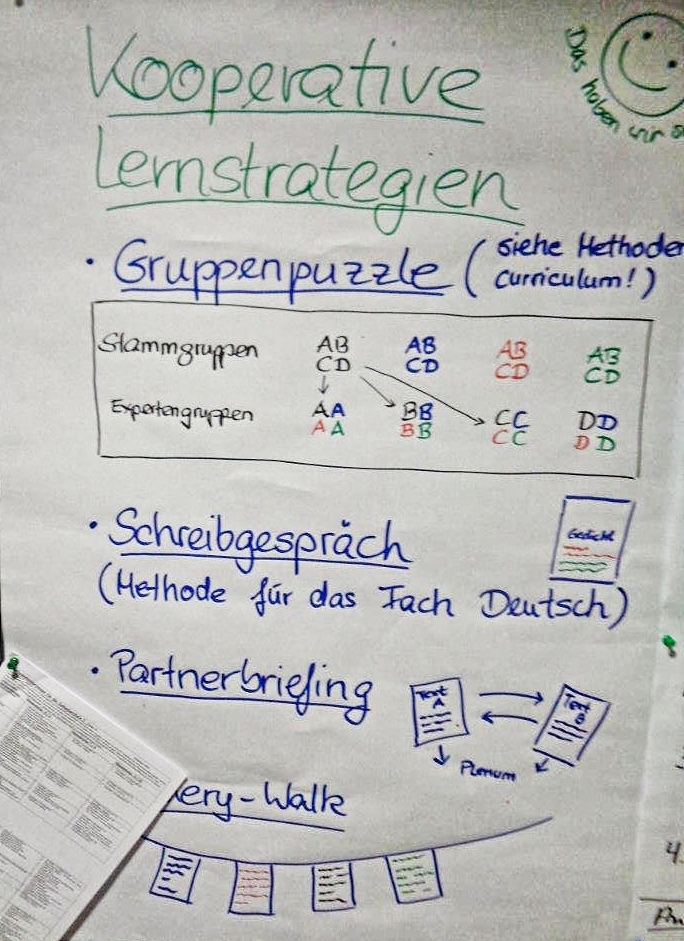 Kooperative
Lernstrategien
Das haben wir
• Gruppenpuzzle (siehe Methoden
curriculum!)
Stammgruppen AB AB AB AB
CD CD CD CD
Expertengruppen AA BB CC DD
AA BB CC DD
• Schreibgespräch
Gedicht
(Methode für das Fach Deutsch)
• Partnerbriefing
Text A
Text B
Plenum
lery-Walk
4.